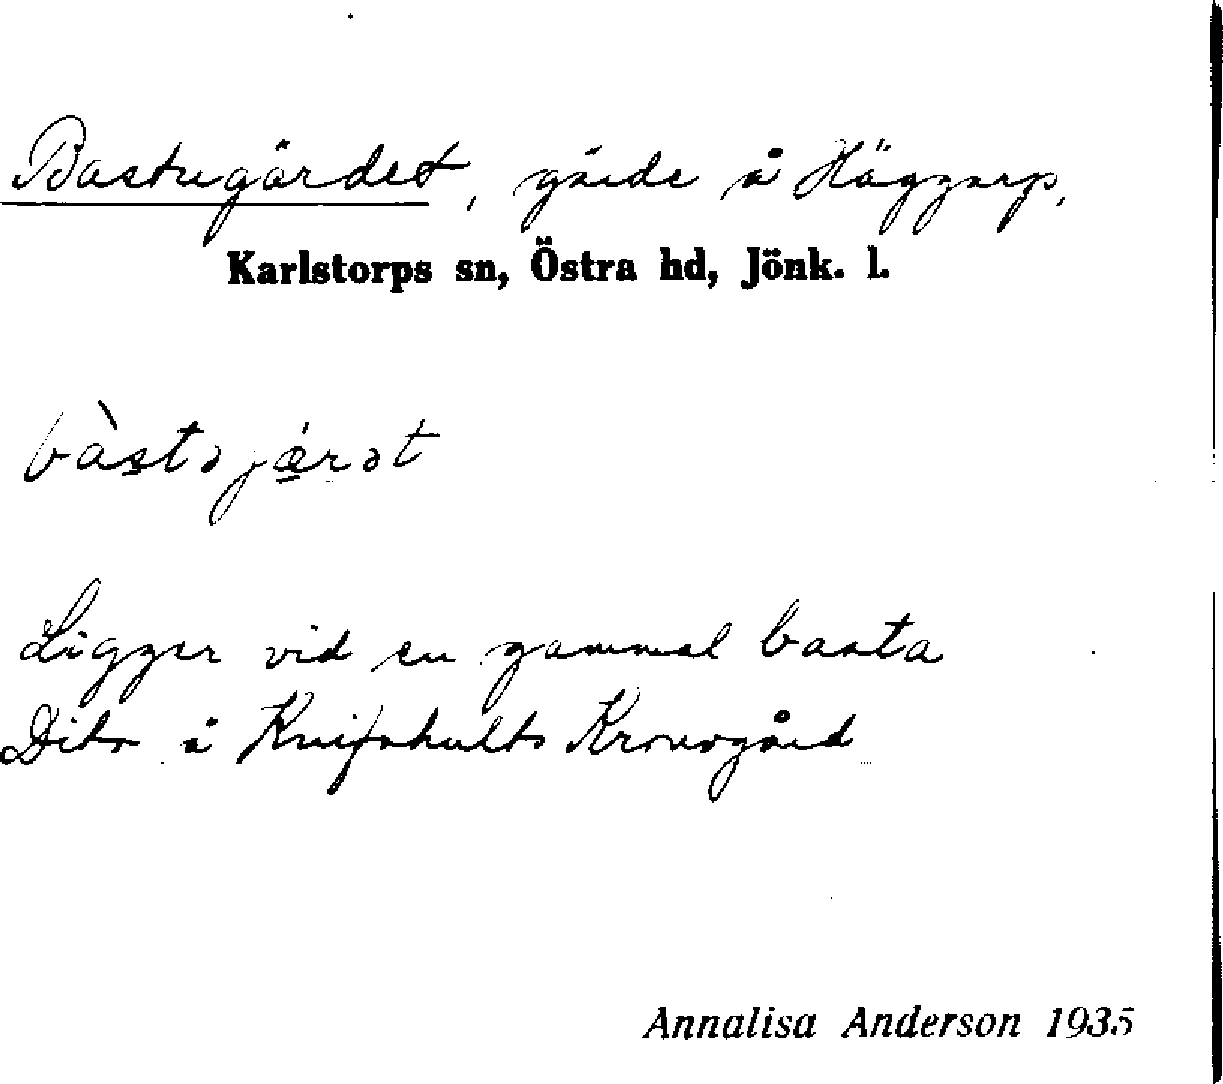 Bastugärdet, gärde å Häggarp,
Karlstorps sn, Östra hd, Jönk. l.
bàstəjæ̲rət
Ligger vid en gammal basta
Dito å Knifshults Kronogård
Annalisa Anderson 1935